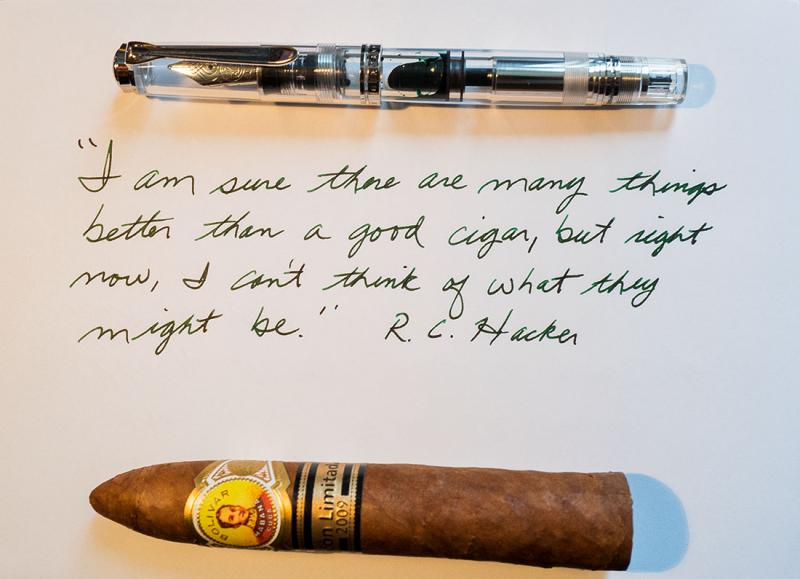 "I am sure there are many things
better than a good cigar, but right
now, I can't think of what they
might be." R. C. Hacker
BOLIVAR
HABANA
CUBA
Limitada
2009